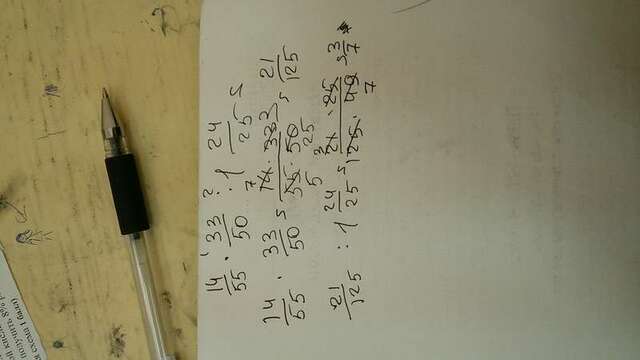 ой кисло
получить 8% р
я схема 1 балл)
14/55 · 33/50 : 1 24/25 =
14/55 · 33/50 = 14 · 33 / 55 · 50 = 21/125
21/125 : 1 24/25 = 21 · 25 / 125 · 49 = 3/7